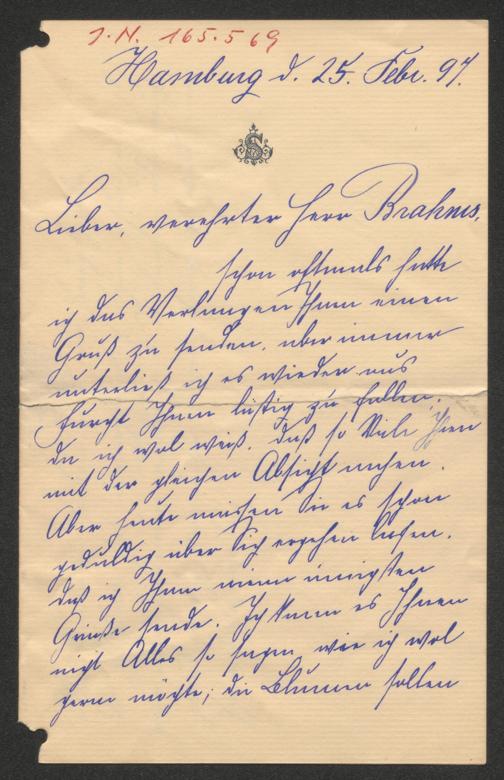 J.N. 165.569
Hamburg d. 25. Febr. 97.
S
Lieber, verehrter Herr Brahms,
schon oftmals hatte
ich das Verlangen Ihnen einen
Gruß zu senden, aber immer
unterließ ich es wieder aus
Furcht Ihnen lästig zu fallen,
da ich wol weiß, daß so Viele Ihnen
mit der gleichen Absicht nahen.
Aber heute müssen Sie es schon
geduldig über Sich ergehen lassen,
daß ich Ihnen meine innigsten
Grüße sende. Ich kann es Ihnen
nicht Alles so sagen wie ich wol
gerne möchte; die Blumen sollen